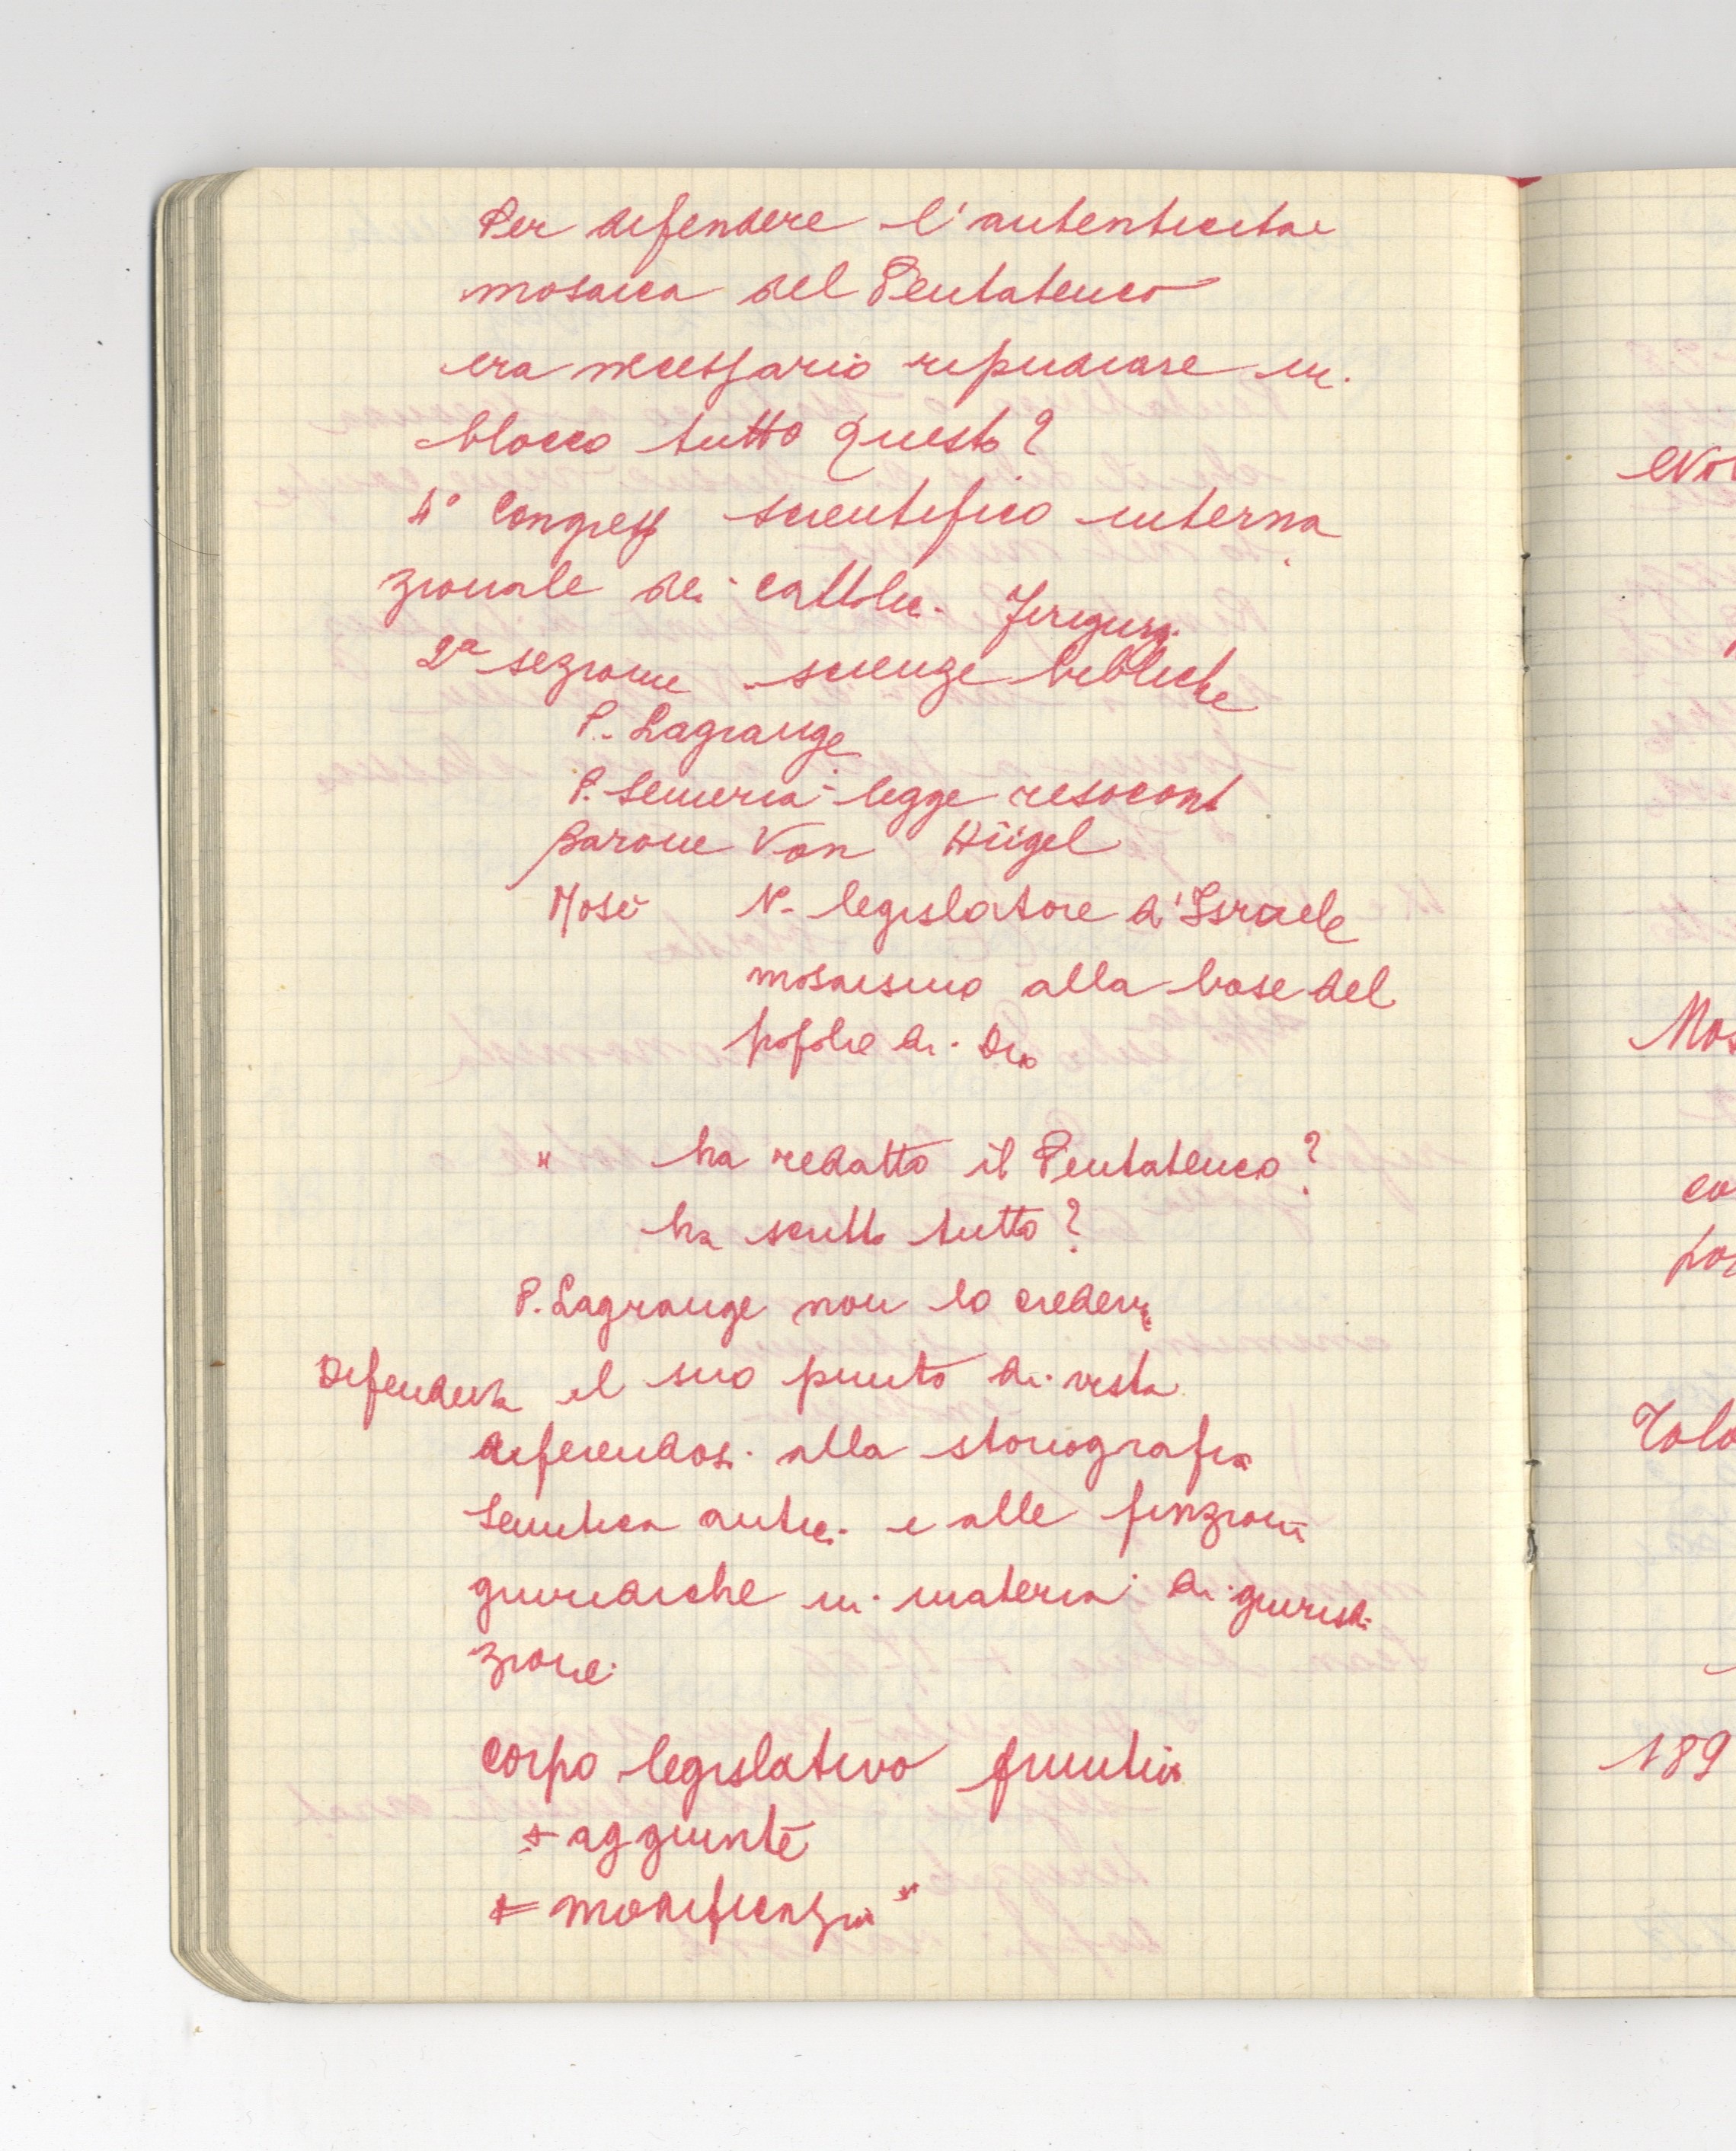 Per difendere l'autenticità
mosaica del Pentateuco
era necessario ripudiare in
blocco tutto questo?
4° Congresso scientifico interna
zionale dei cattolici
2a sezione scienze bibliche
P. Lagrange
P. Semeria legge resocont
Barone Von Hügel
Mosè legislatore d'Israele
mosaismo alla base del
popolo di Dio
" ha redatto il Pentateuco?
ha scritto tutto?
P. Lagrange non lo credeva
Difendeva il suo punto di vista
alla storiografia
Semitica antic. e alle finzioni
giuridiche in materia di giurisdi
zione
Corpo legislativo
+ aggiunte
+ modificazioni
evol
Mos
co
por
Tolo
189